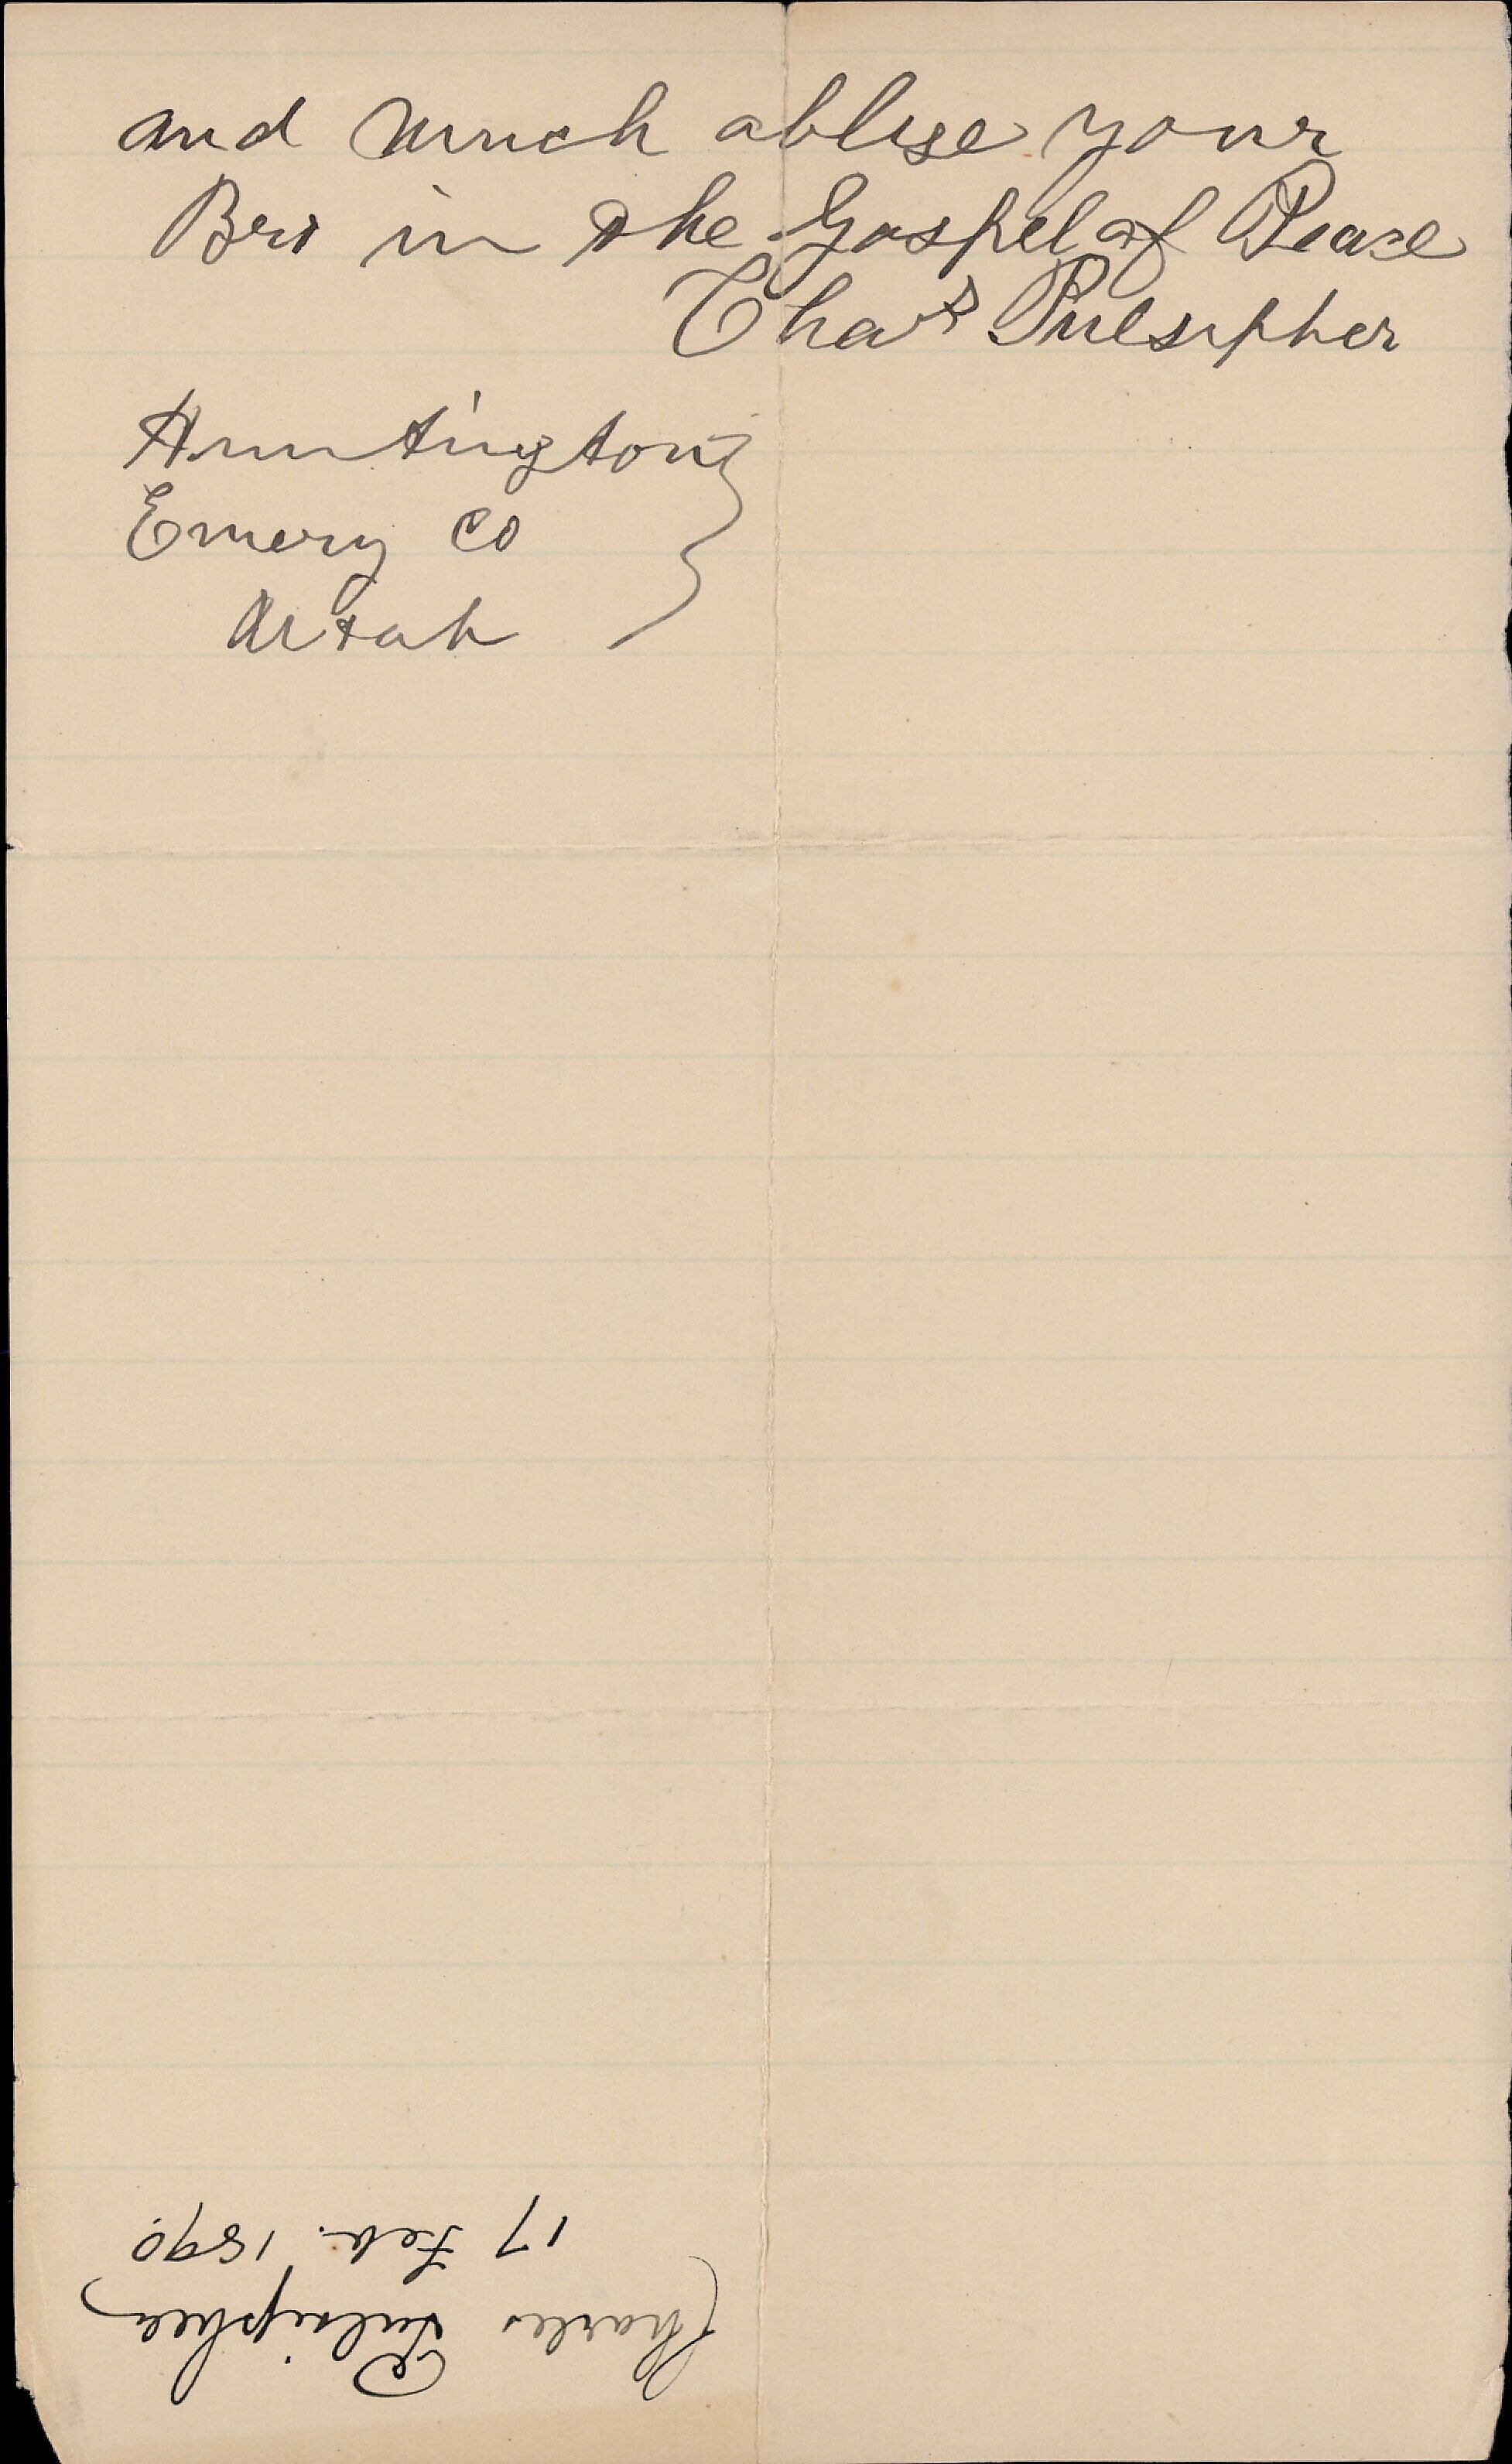 and much oblige your
Bro in the Gospel of Peace
Chas Pulsipher
Huntington
Emery Co
Utah
Charles Pulsipher
17 Feb. 1890.